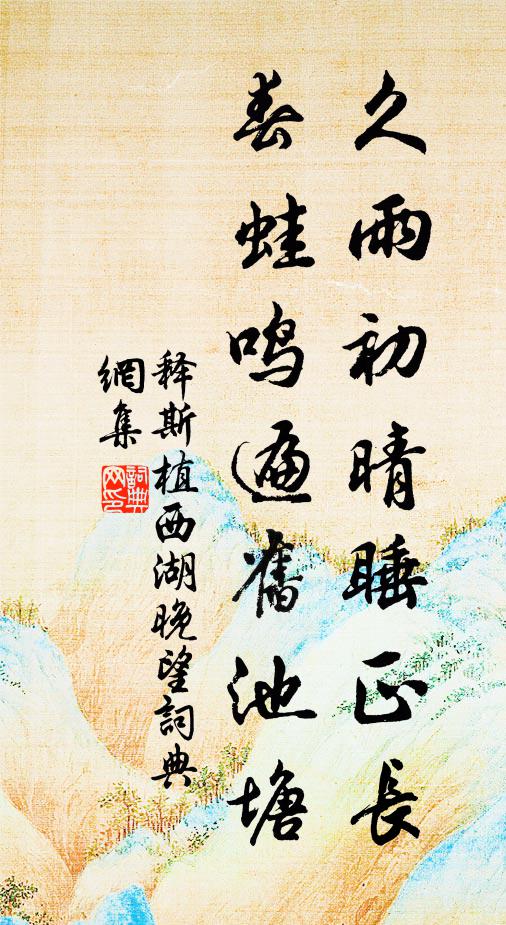 久雨初晴睡正長
春蛙鳴遍舊池塘
释斯植西湖晚望詞典
網集
詞典
网